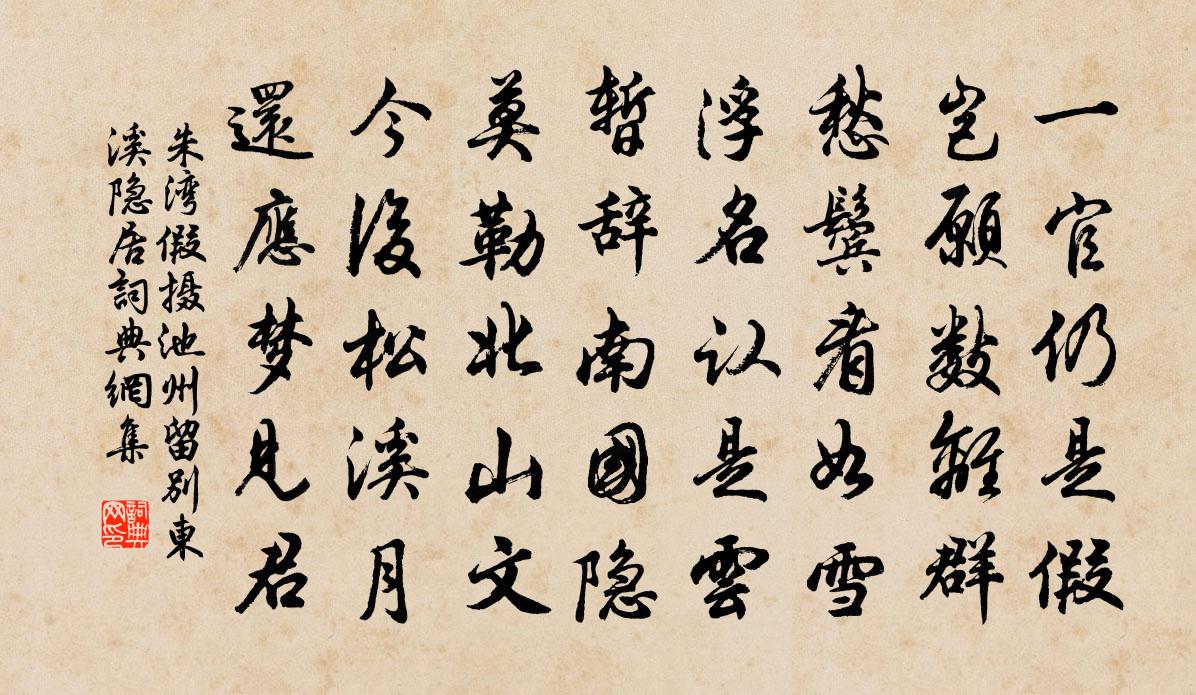 一官仍是假
豈願數離群
愁鬢看如雪
浮名认是雲
暫辞南國隐
莫勒北山文
今後松溪月
還應梦見君
朱湾假摄池州留别東
溪隐居詞典網集
詞典网印